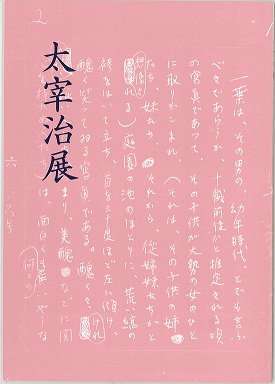 太宰治展
2
一葉は、その男の、幼年時代、とでも言ふ
べきであらうか、十歳前後かと推定される頃
の寫眞であつて、その子供が大勢の女のひと
に取りかこまれ、（それは、その子供の姉
たち、妹たち、それから、從姉妹たちかと
想像される）庭園の池のほとりに、荒い縞の
袴をはいて立ち、首を三十度ほど左に傾け、
醜く笑つてゐる寫眞である。醜く けれ
まり、美醜などに関
は、面白くも
何とも